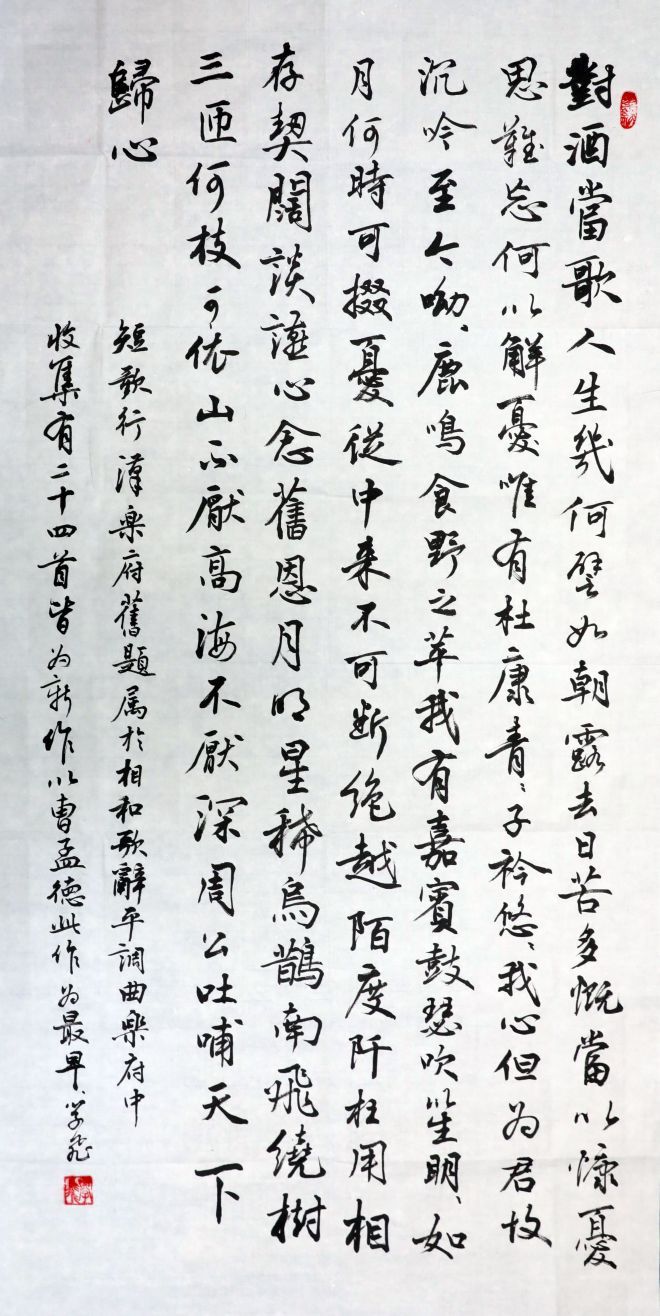 對酒當歌人生幾何譬如朝露去日苦多慨當以慷憂
思難忘何以解憂唯有杜康青、子衿悠、我心但为君故
沉吟至今呦、鹿鳴食野之苹我有嘉賓鼓瑟吹笙明、如
月何時可掇憂從中来不可断绝越陌度阡枉用相
存契闊談讌心念舊恩月明星稀烏鵲南飛繞樹
三匝何枝可依山不厭高海不厭深周公吐哺天下
歸心
短歌行漢樂府舊題属於相和歌辭平調曲樂府中
收集有二十四首皆为新作以曹孟德此作为最早